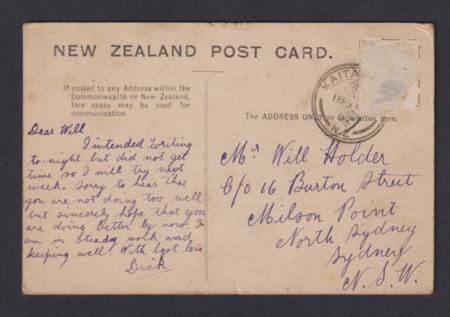 NEW ZEALAND POST CARD.
If posted to any Address within the
Commonwealth or New Zealand,
this space may be used for
communication
The ADDRESS ONLY to be written here.
KAITA
N.Z
Dear Will
I intended writing
to-night but did not get
time so I will try next
week. Sorry to hear that
you are not doing too well
but sincerely hope that you
are doing better by now I
am in steady work and
keeping well. With best love
Dick
Mr Will Holder
C/o 16 Burton Street
Milson Point
North Sydney
Sydney
N. S. W.